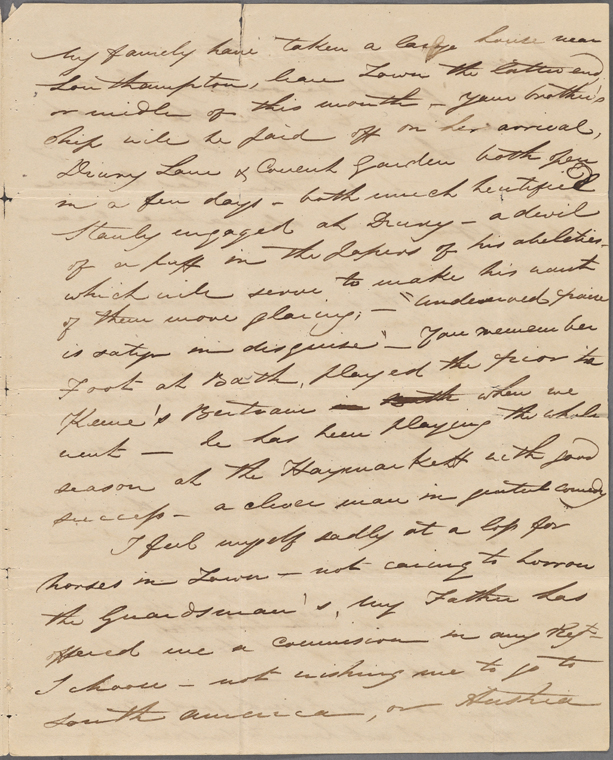 My family have taken a large house near
Southampton, leave Town the latter end
or middle of this month – Your brother's
ship will be paid off on her arrival,
Drury Lane & Covent Garden both open
in a few days – both much beautified
Stanly engaged at Drury – a devil
of a puff in the papers of his abilities –
which will serve to make his want
of them more glaring; – "undeserved praise
is satyr in disguise" – You remember
Foot at Bath, played the Prior in
Kene's Bertram when we
went – he has been playing the whole
season at the Haymarkett with good
success – a clever man in genteel comedy
I feel myself sadly at a loss for
horses in Town – not caring to borrow
the Guardsman's, My Father has
offered me a commission in any Regt –
I choose – not wishing me to go to
South america, or Austria